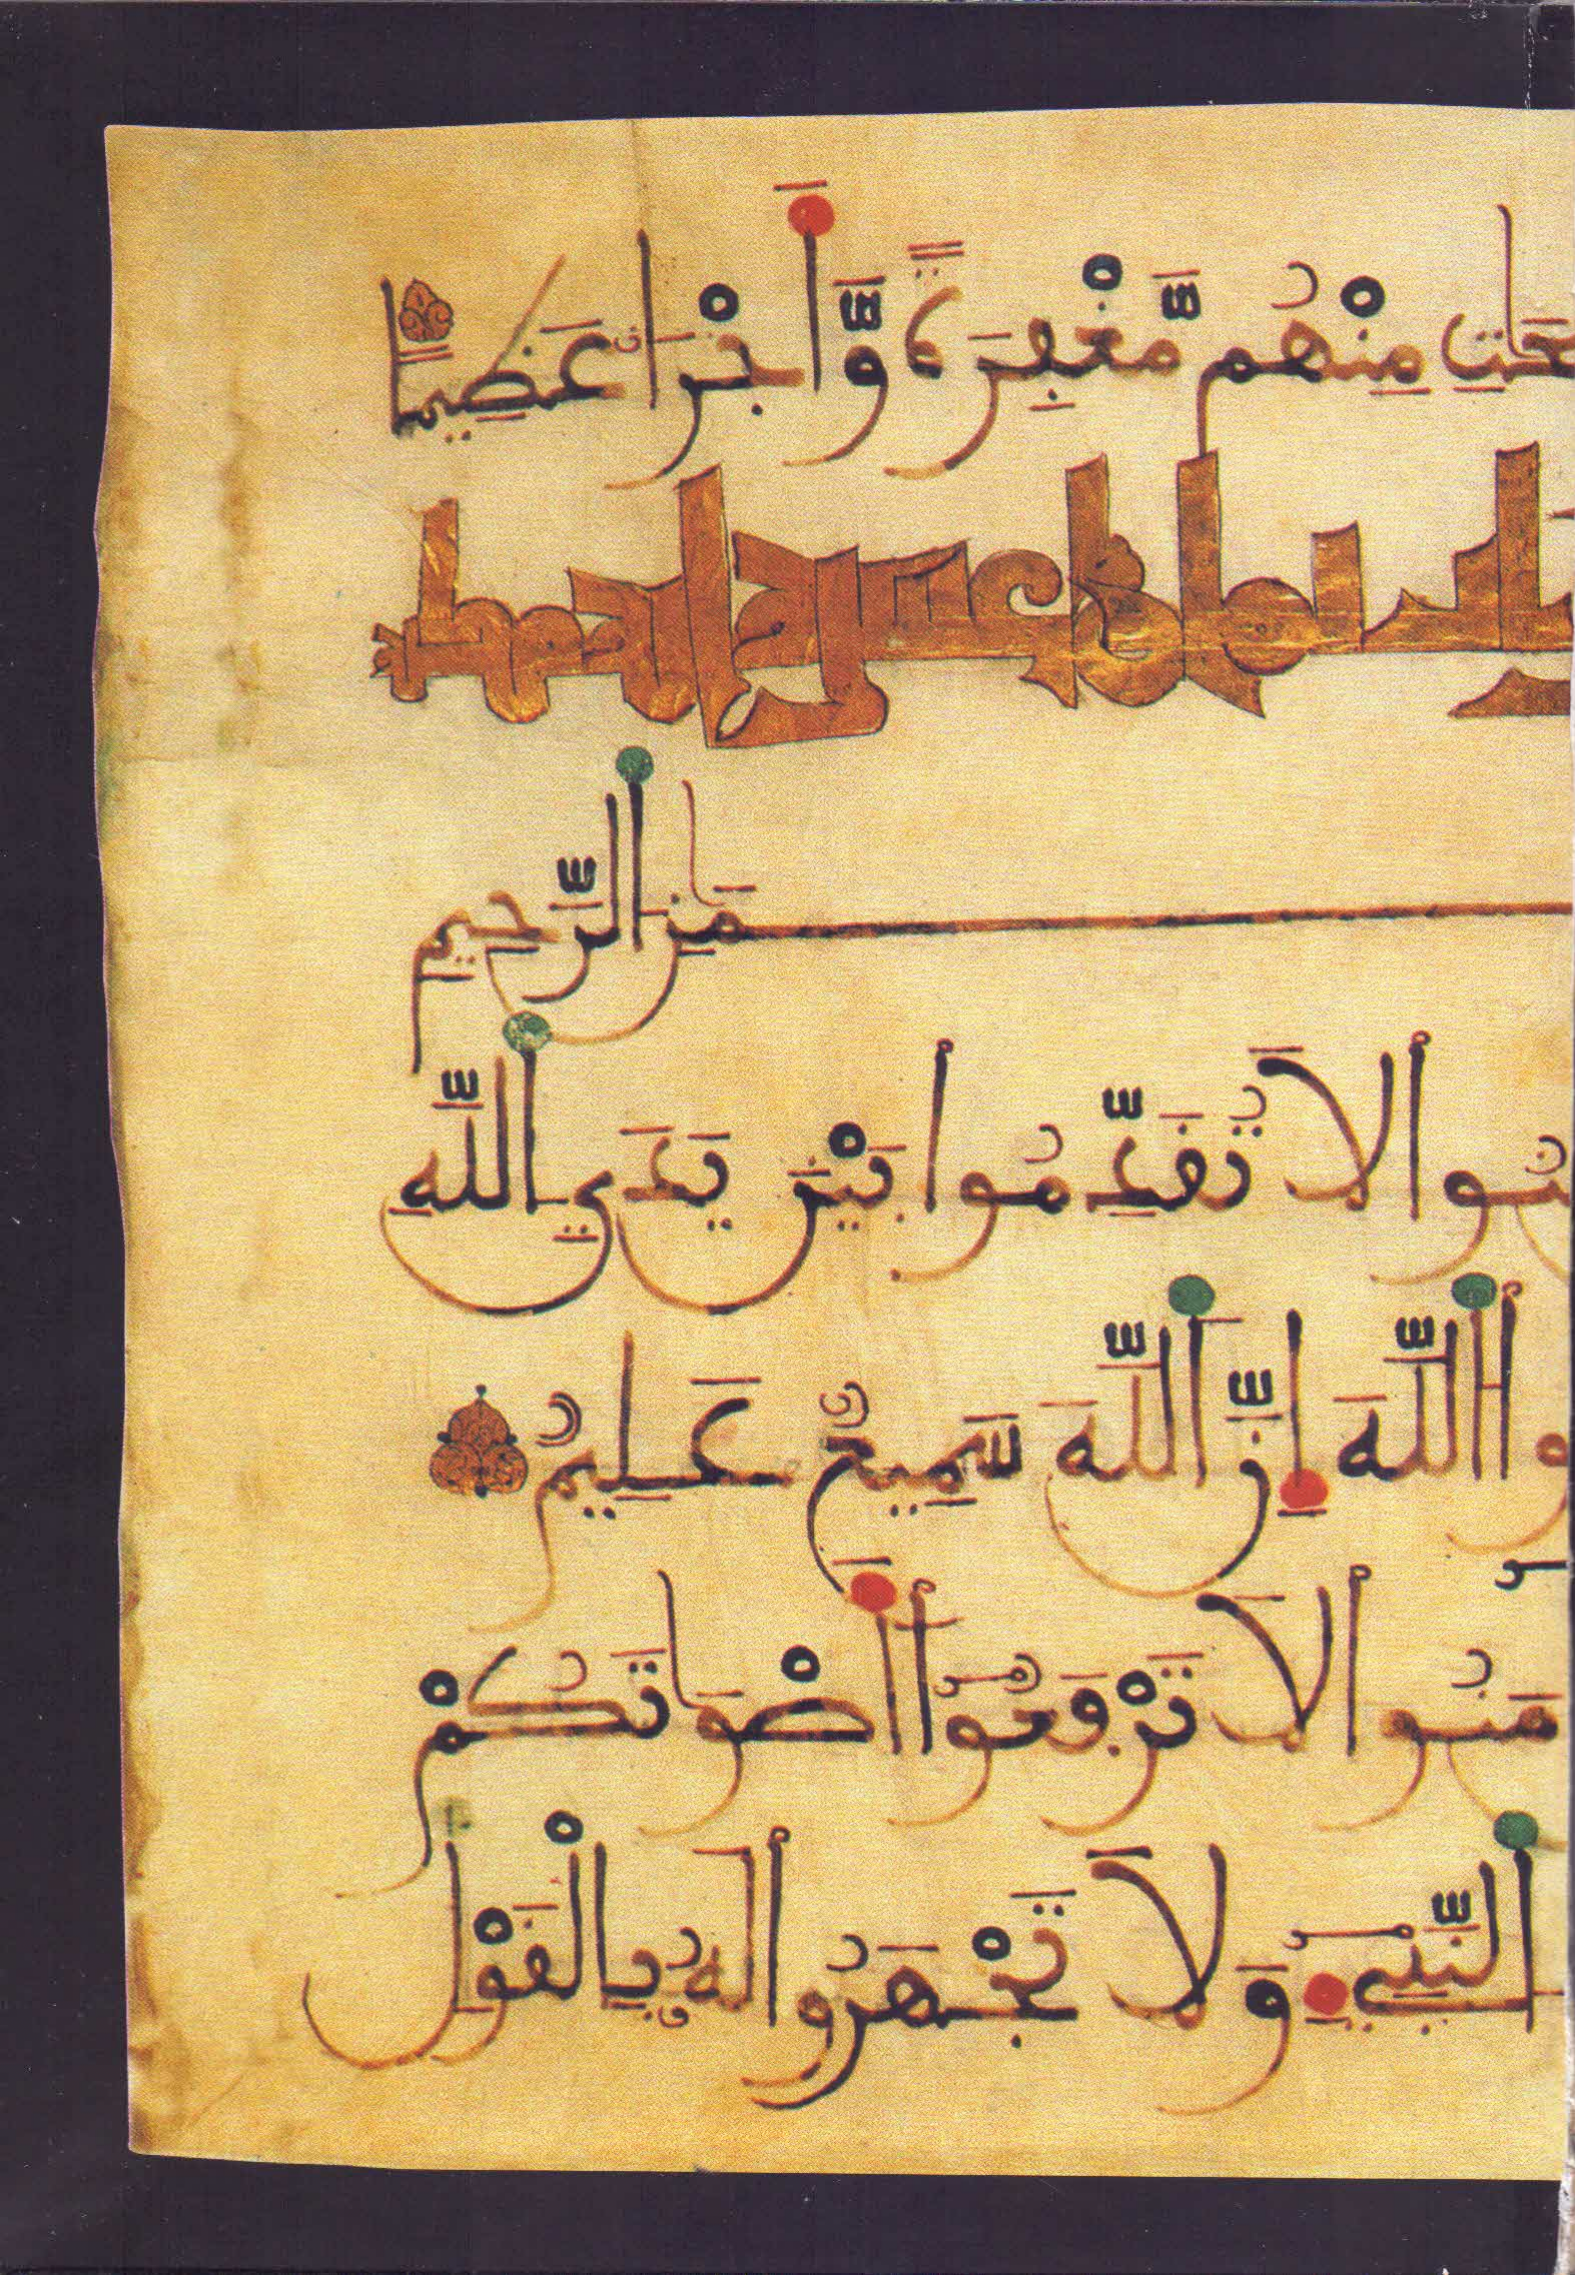 حَٰتِ مِنْهُم مَّغْفِرَةً وَّأَجْراً عَظِيماً
مَٰنِ الرَّحِيمِ
نُوا لَا تُقَدِّمُوا بَيْنَ يَدَيِ اللَّهِ
وا اللَّهَ إِنَّ اللَّهَ سَمِيعٌ عَلِيمٌ
مَنُوا لَا تَرْفَعُوا أَصْوَٰتَكُمْ
النَّبِيءِ وَلَا تَجْهَرُوا لَهُ بِالْقَوْلِ